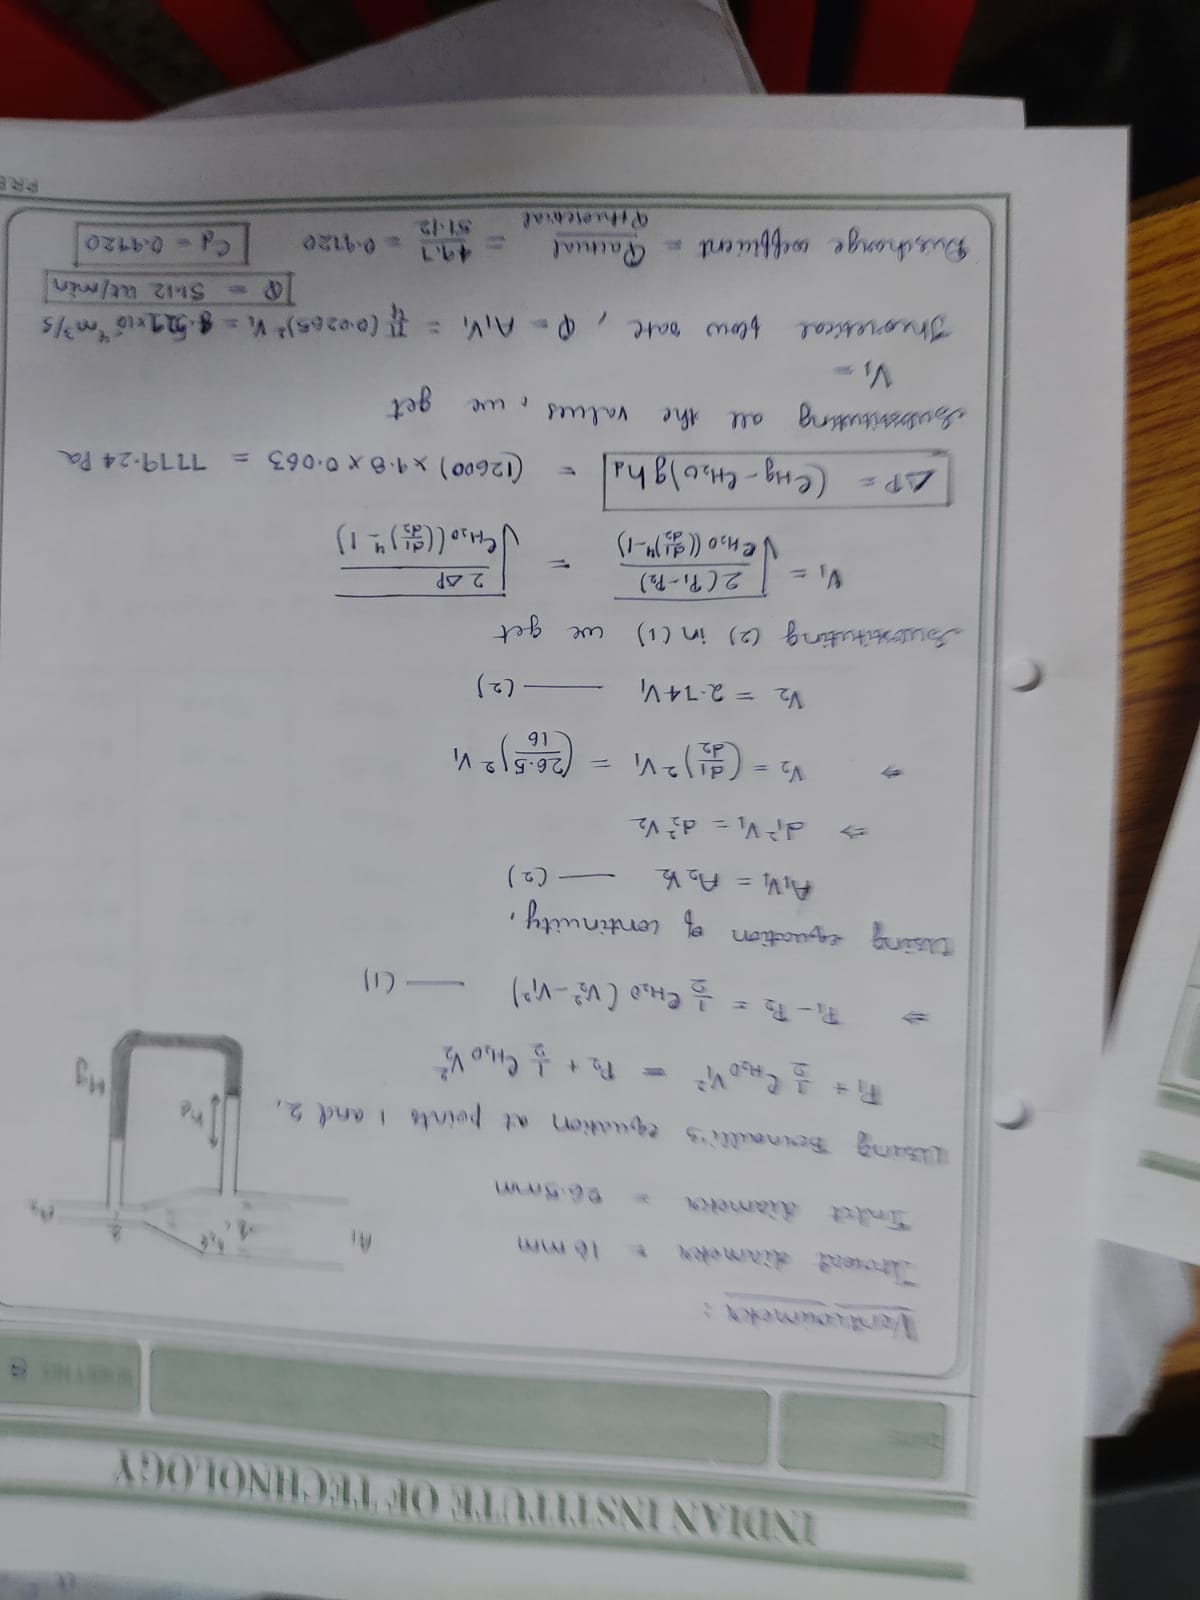 INDIAN INSTITUTE OF TECHNOLOGY
DATE
SHEET NO. 8
Venturimeter :
Throat diameter = 16 mm
Inlet diameter = 26.5mm
A1
1
2
A2
hd
Hg
Using Bernoulli's equation at points 1 and 2,
P₁ + 1/2 ρH₂O V₁² = P₂ + 1/2 ρH₂O V₂²
⇒ P₁ - P₂ = 1/2 ρH₂O (V₂² - V₁²) — (1)
Using equation of continuity,
A₁V₁ = A₂V₂ — (2)
⇒ d₁² V₁ = d₂² V₂
⇒ V₂ = (d₁/d₂)² V₁ = (26.5/16)² V₁
V₂ = 2.74V₁ — (2)
Substituting (2) in (1) we get
V₁ = √(2(P₁-P₂)/ρH₂O((d₁/d₂)⁴-1)) = √(2ΔP/ρH₂O((d₁/d₂)⁴-1))
ΔP = (ρHg - ρH₂O)ghd = (12600) x 9.8 x 0.063 = 7779.24 Pa
Substituting all the values, we get
V₁ =
Theoretical flow rate, Q = A₁V₁ = π/4 (0.0265)² V₁ = 8.521x10⁻⁴m³/s
Q = 51.12 lit/min
Discharge coefficient = Qactual/Qtheoretical = 49.7/51.12 = 0.9720
Cd = 0.9720